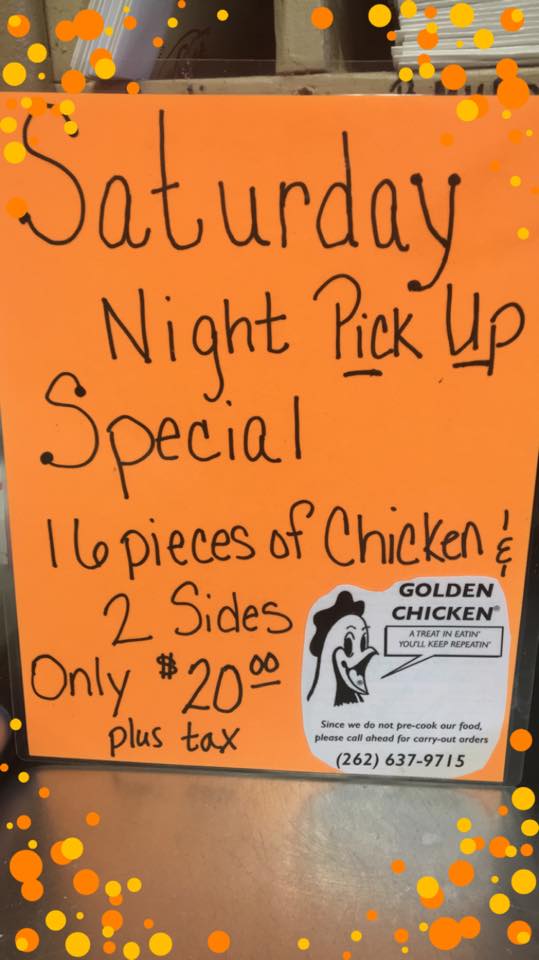 Saturday
Night Pick Up
Special
16 pieces of Chicken &
2 Sides
Only $20.00
plus tax
GOLDEN
CHICKEN®
A TREAT IN EATIN'
YOU'LL KEEP REPEATIN'
Since we do not pre-cook our food,
please call ahead for carry-out orders
(262) 637-9715